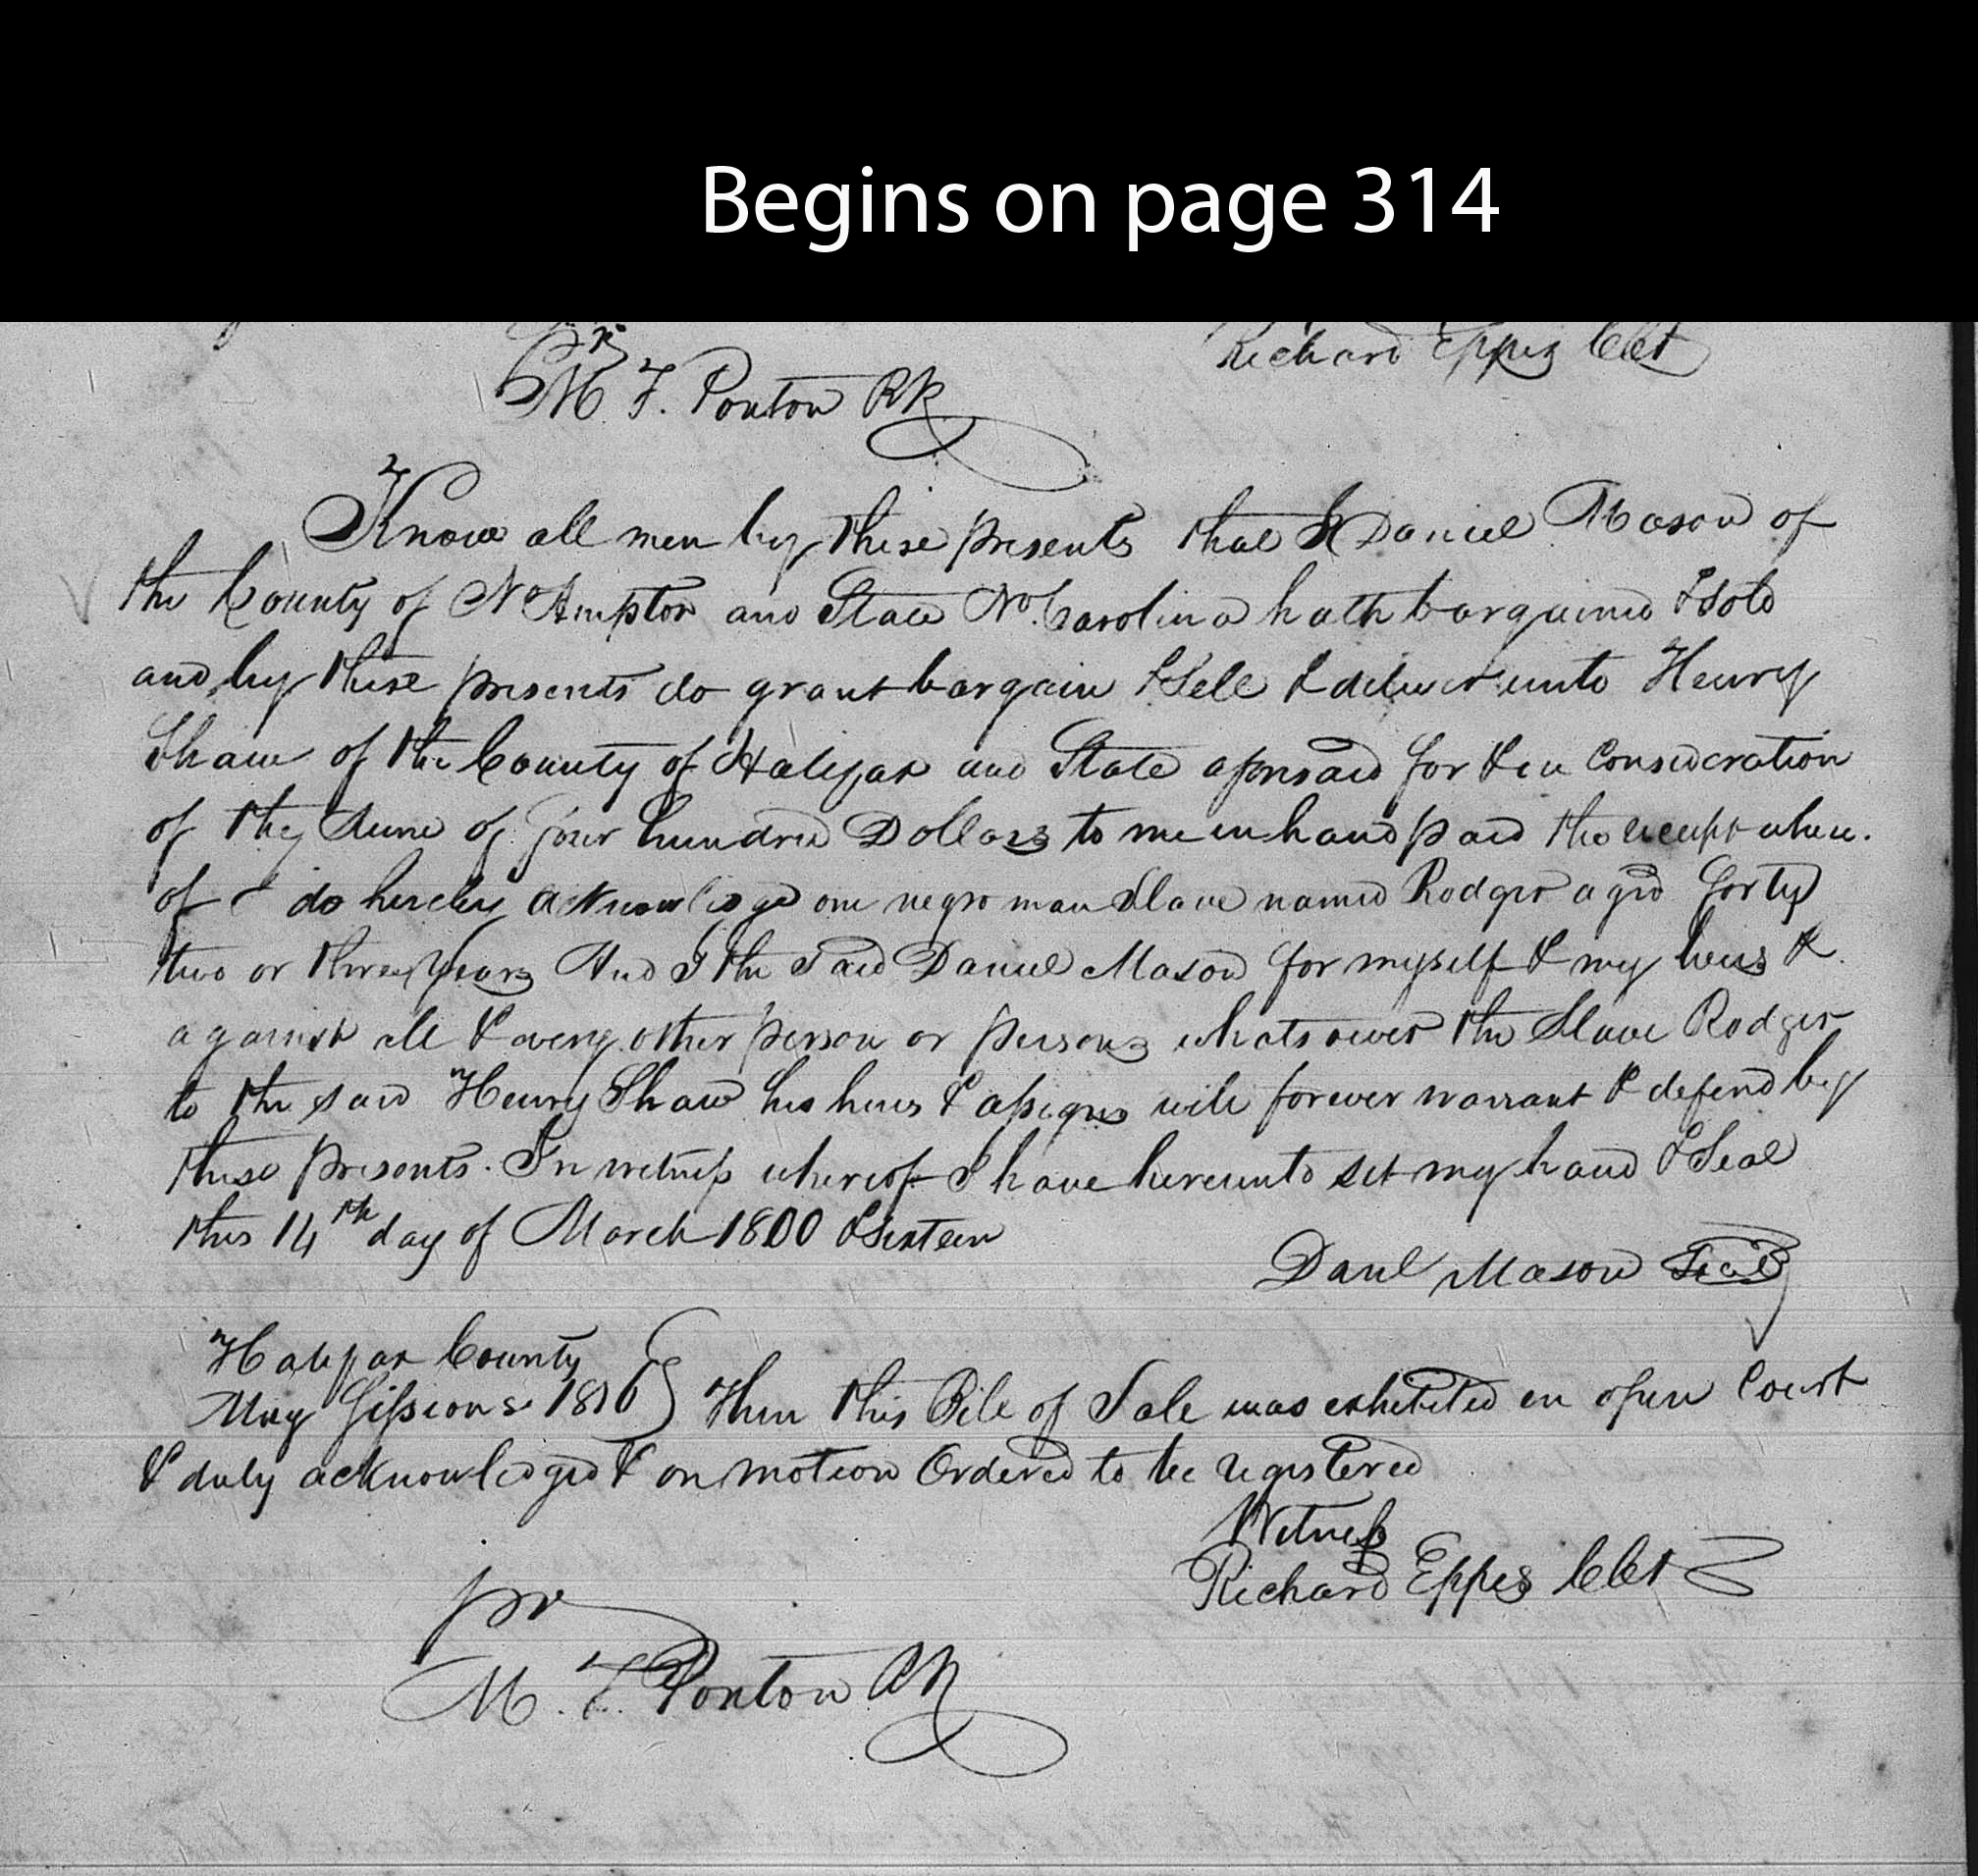 Begins on page 314
Richard Eppes Clk
M. F. Ponton RR
Know all men by these presents that I Daniel Mason of
the County of No Hampton and State No. Carolina hath bargained & sold
and by these presents do grant bargain & Sell & deliver unto Henry
Shaw of the County of Halifax and State aforesaid for & in Consideration
of the Sume of four hundred Dollars to me in hand paid the receipt where.
of I do hereby acknowledge one negro man Slave named Rodger aged forty
two or three years And I the said Daniel Mason for myself & my heirs &
against all & every other person or persons whatsoever the Slave Rodger
to the said Henry Shaw his heirs & assigns will forever warrant & defend by
these presents. In witness whereof I have hereunto set my hand & Seal
this 14th day of March 1800 & Sixteen
Danl Mason Seal
Halifax County
May Sessions 1816 } Then this Bill of Sale was exhibited in open Court
& duly acknowledged & on motion Ordered to be registered
Witness
Richard Eppes Clk
pr
M. F. Ponton RR